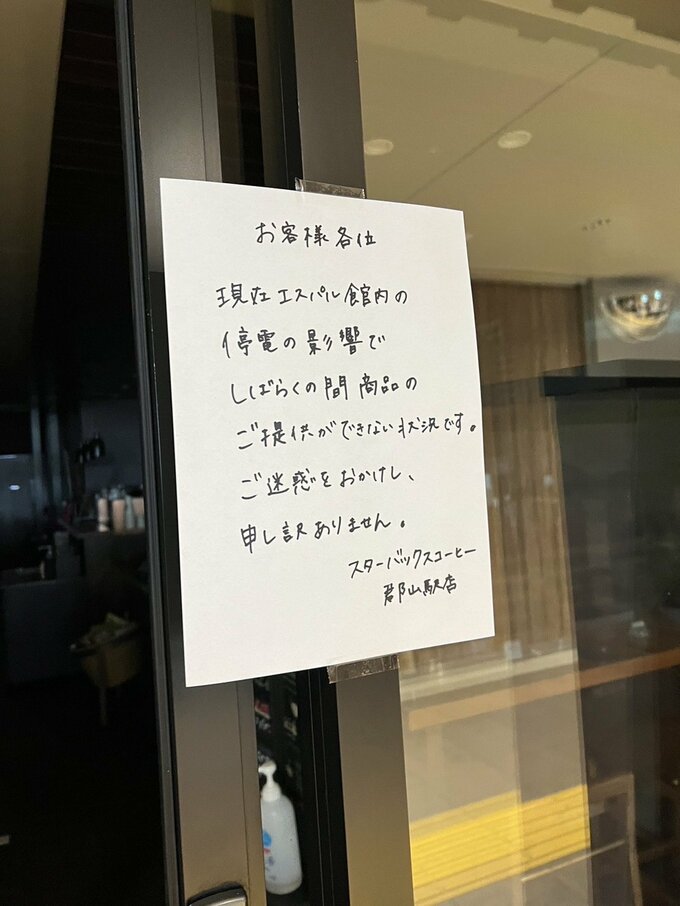 お客様各位
現在エスパル館内の
停電の影響で
しばらくの間商品の
ご提供ができない状況です。
ご迷惑をおかけし、
申し訳ありません。
スターバックスコーヒー
郡山駅店